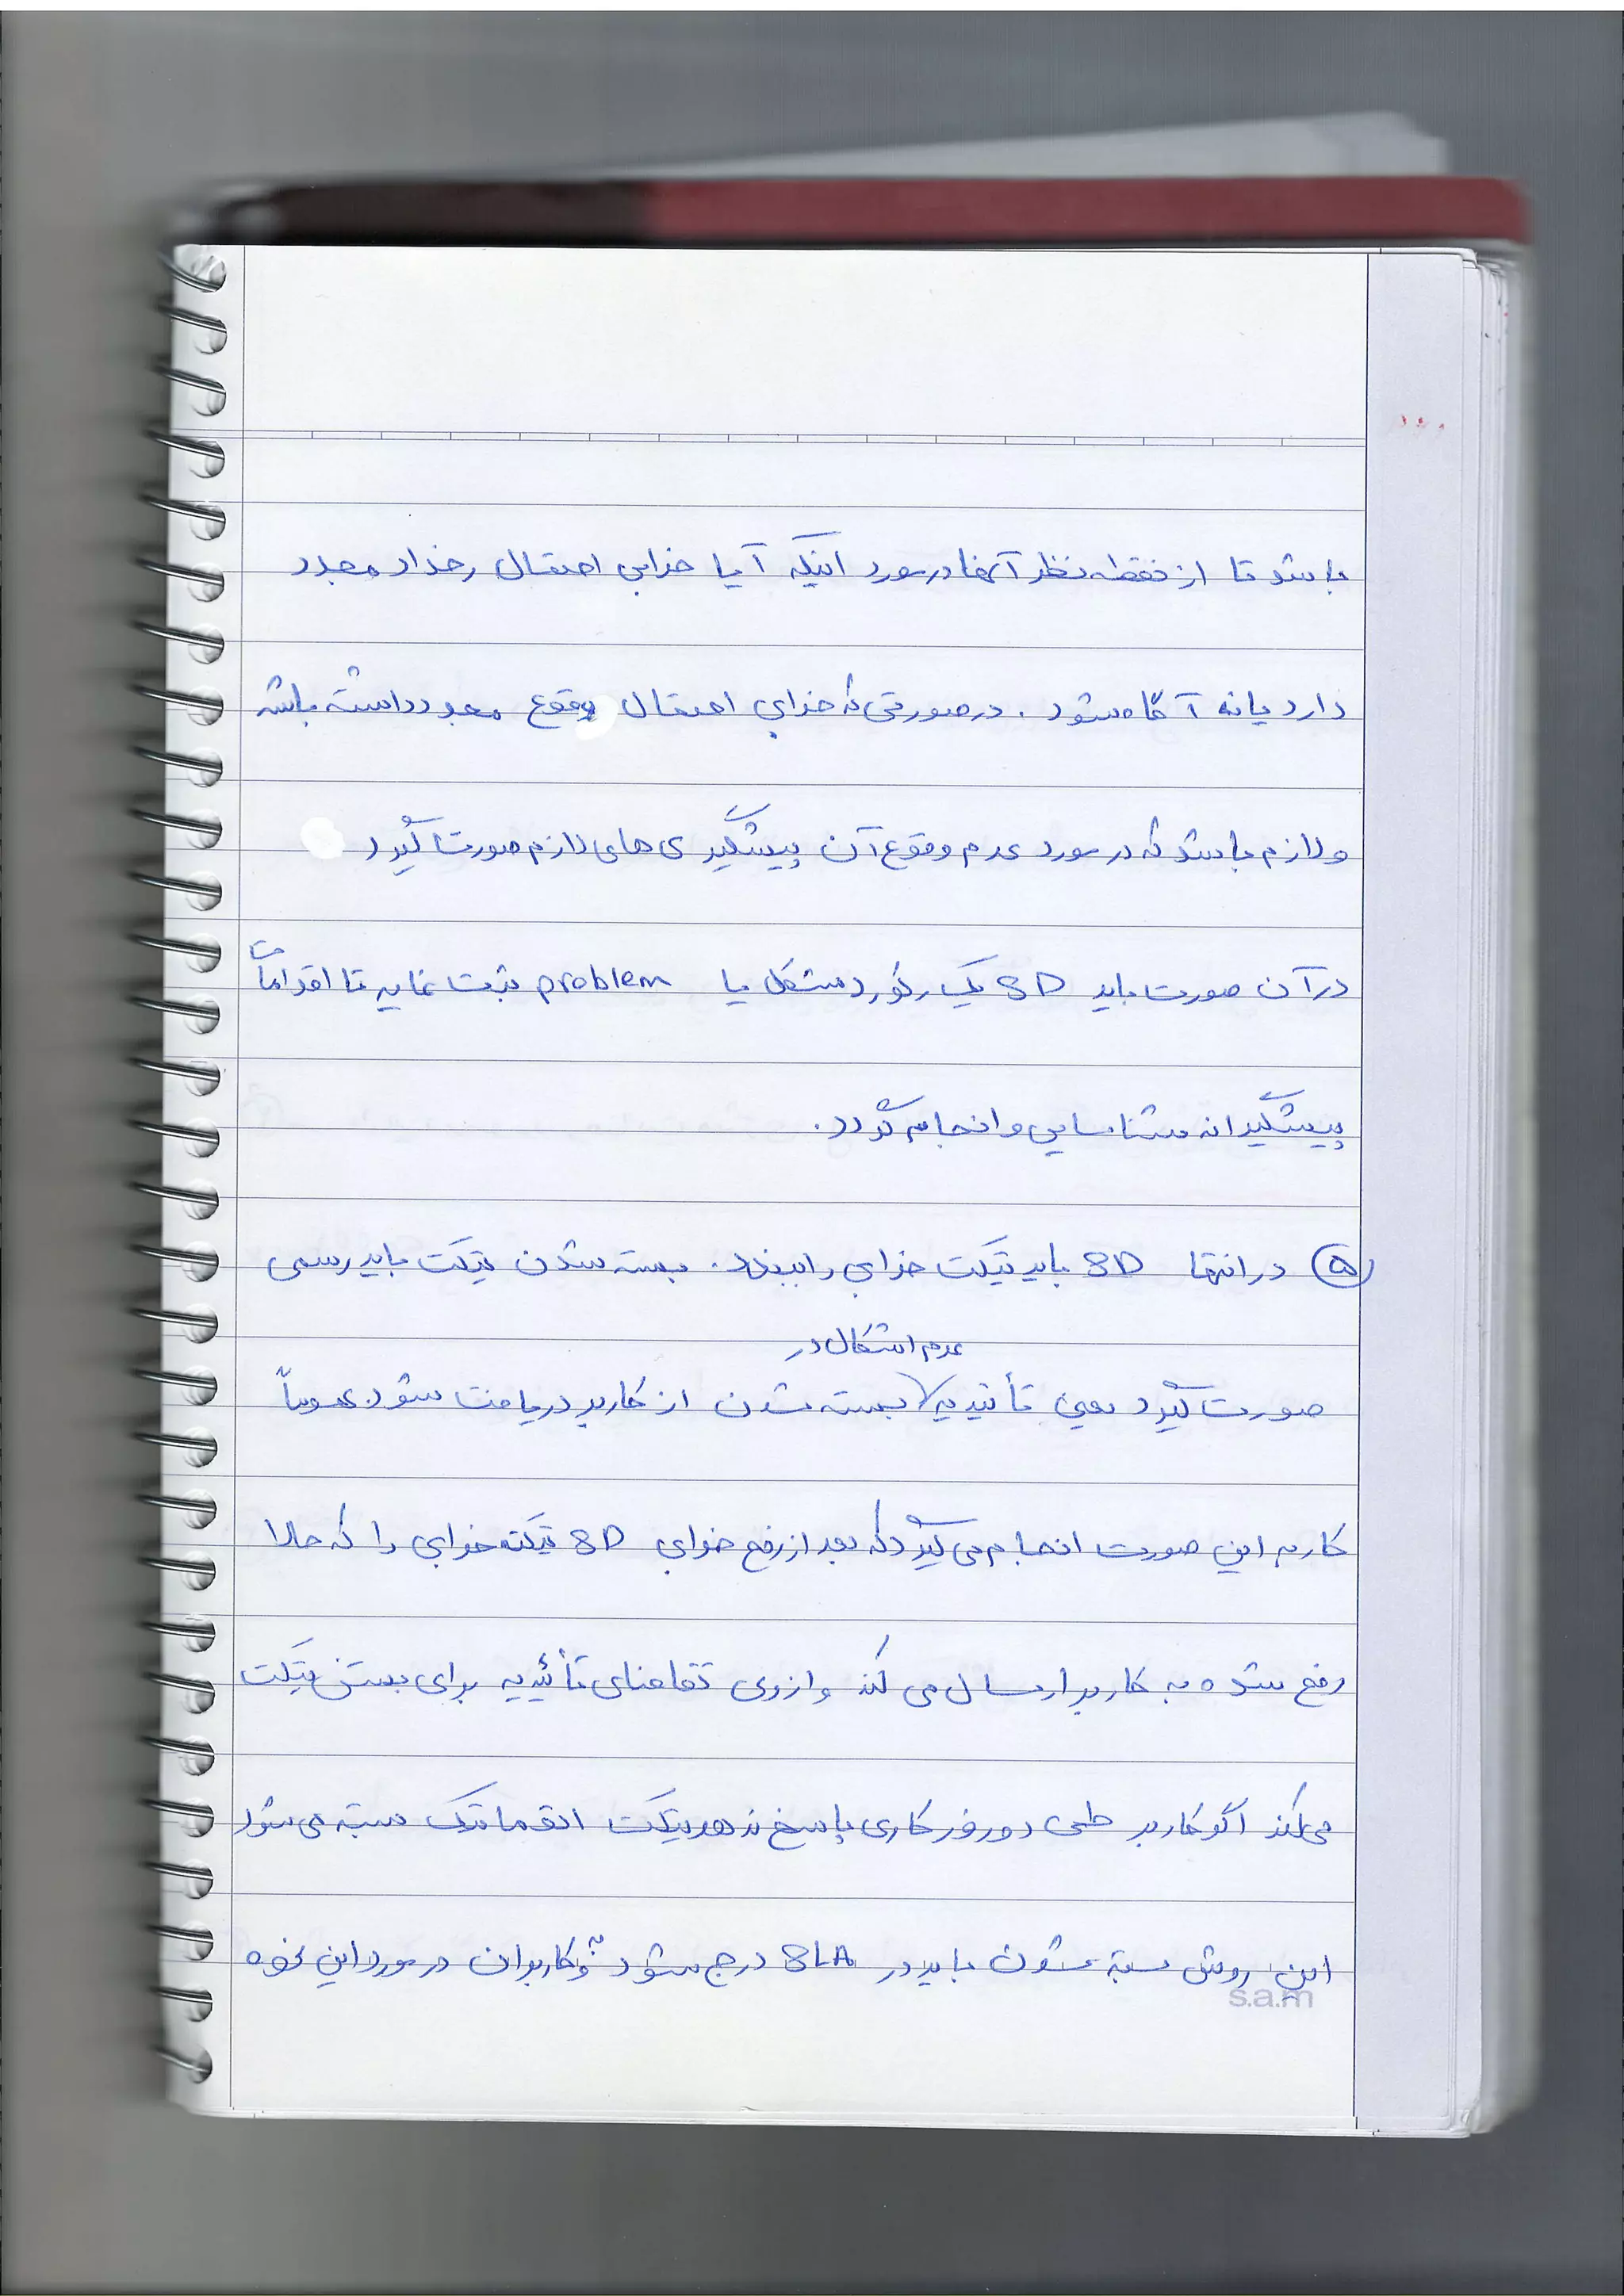 باشد تا از نقطه نظر آنها در مورد اینکه آیا خرابی احتمال رخداد مجدد
دارد یا نه آگاه شود. در صورتی که خرابی احتمال وقوع مجدد داشته باشد
و لازم باشد که در مورد عدم وقوع آن پیشگیری های لازم صورت گیرد
در آن صورت باید SD یک رکورد مشکل یا problem ثبت نماید تا اقدامات
پیشگیرانه شناسایی و انجام گردد.
۵ در انتها SD باید تیکت خرابی را ببندد. بسته شدن تیکت باید رسمی
عدم اشکال در
صورت گیرد یعنی تأئیدیه بسته شدن از کاربر دریافت شود. عموماً
کار به این صورت انجام می گیرد که بعد از رفع خرابی SD تیکت خرابی را که حالا
رفع شده به کاربر ارسال می کند و از وی تقاضای تأئیدیه برای بستن تیکت
می کند اگر کاربر طی دو روز کاری پاسخ ندهد تیکت اتوماتیک بسته می شود
این روش بسته شدن باید در SLA درج شود و کاربران در مورد این نحوه
s.a.m